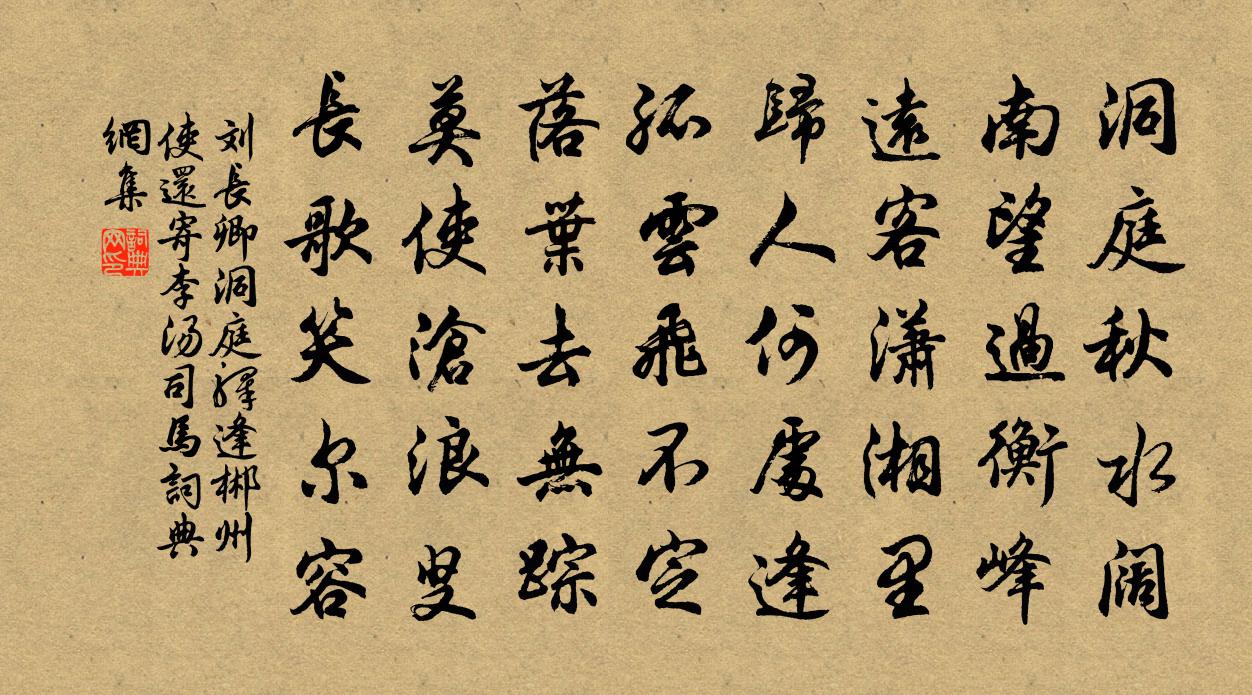 洞庭秋水阔
南望過衡峰
遠客瀟湘里
歸人何處逢
孤雲飛不定
落葉去無踪
莫使滄浪叟
長歌笑尔容
刘長卿洞庭驛逢郴州
使還寄李汤司馬詞典
網集
詞典網印